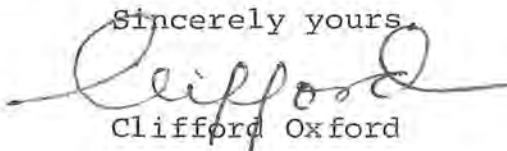 Sincerely yours,
Clifford
Clifford Oxford